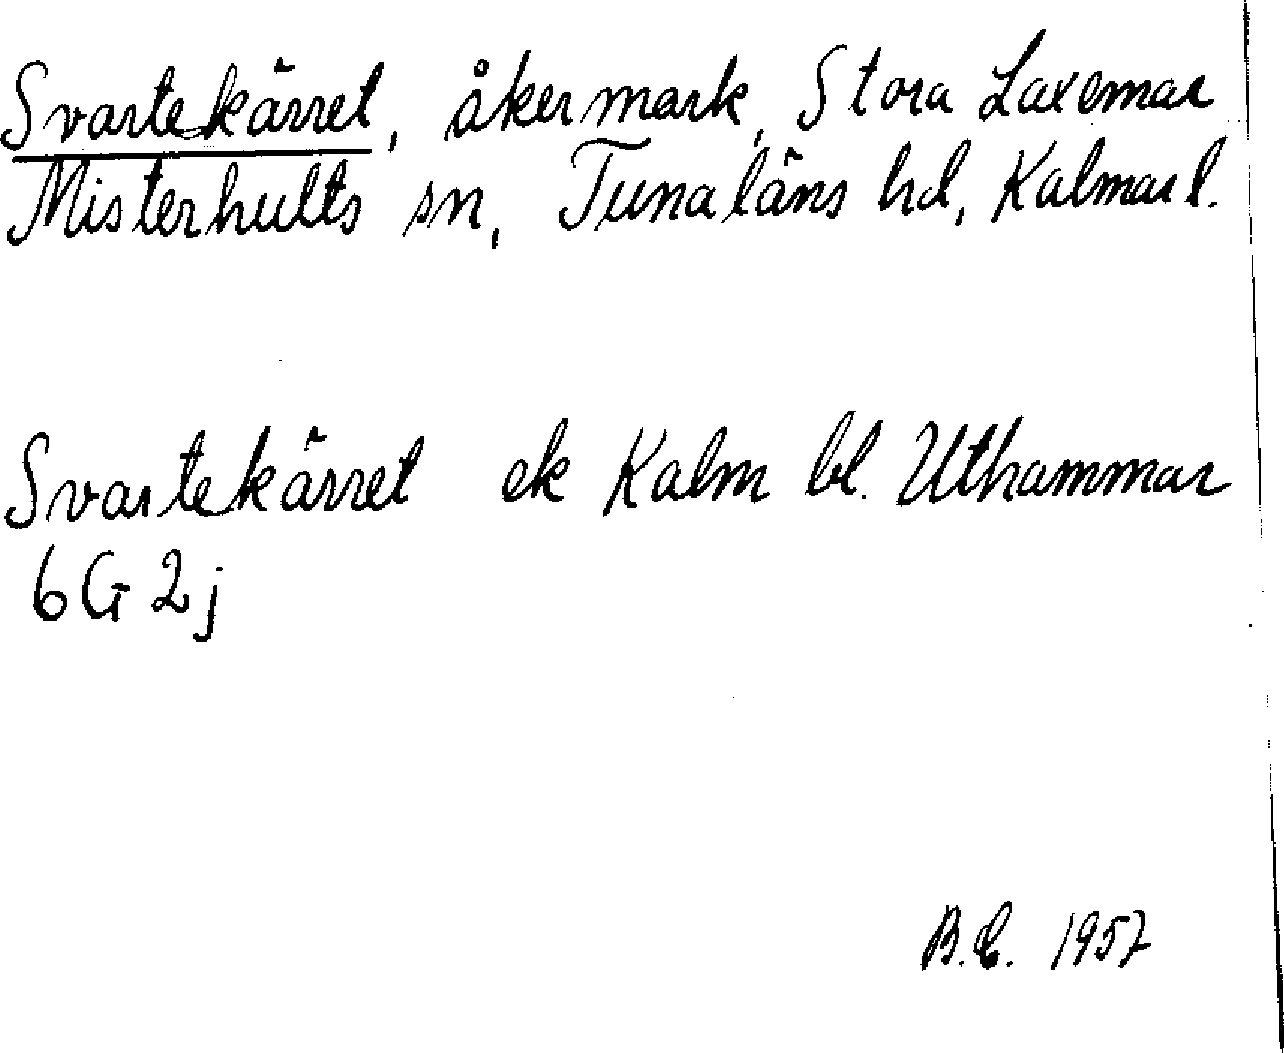 Svartekärret, åkermark, Stora Laxemar
Misterhults sn, Tunaläns hd, Kalmar l.
Svartekärret ek Kalm bl. Uthammar
6G 2j
B.C. 1957